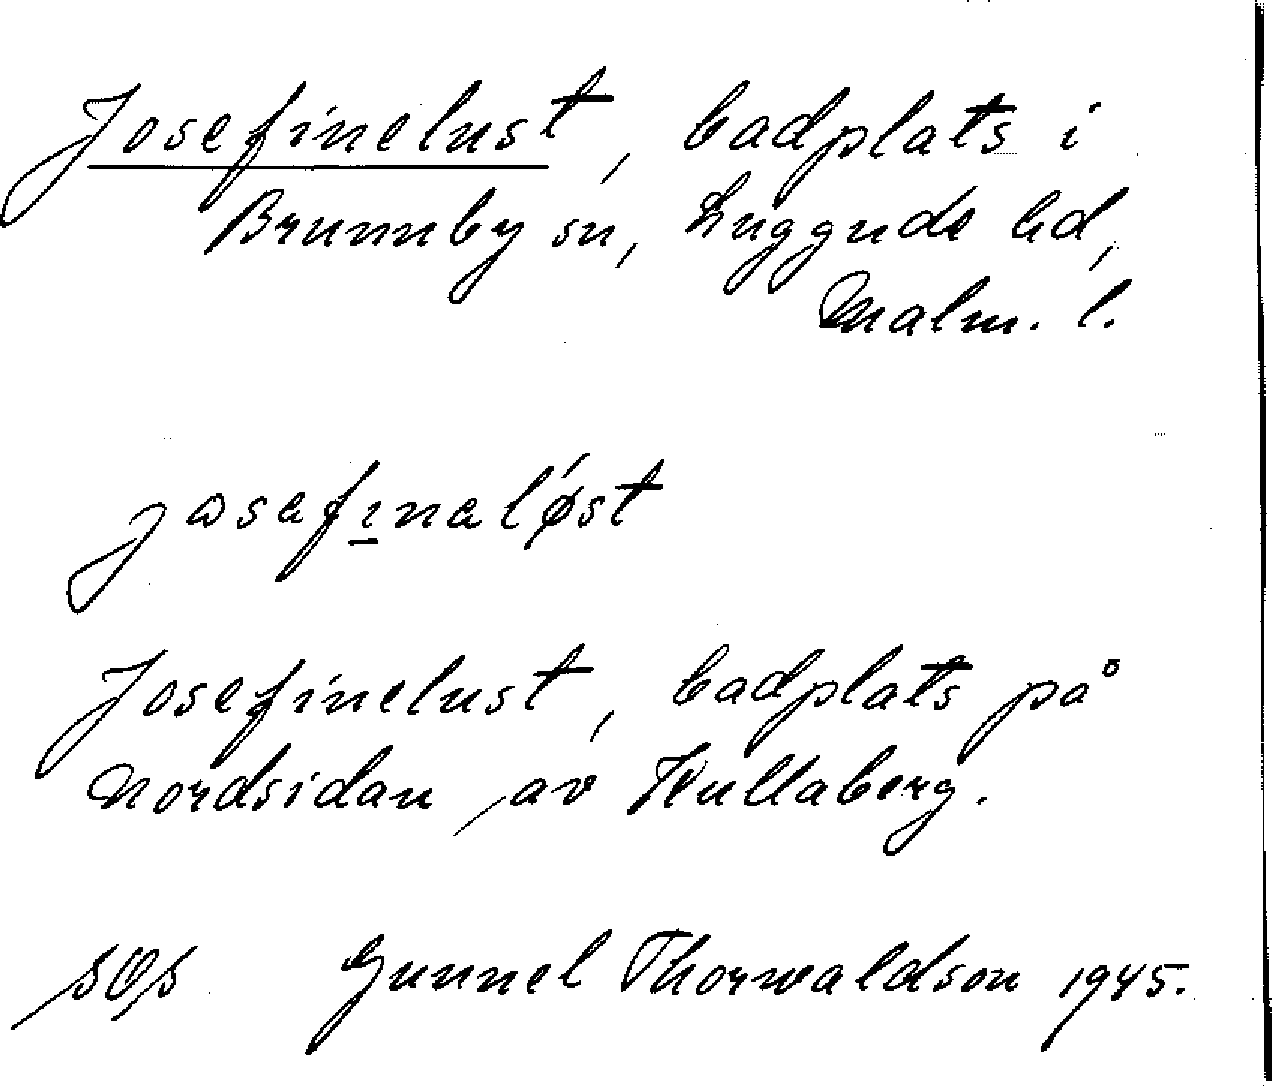 Josefinelust, badplats i
Brunnby sn, Luggude hd,
Malm. l.
Josefinelust, badplats på
nordsidan av Kullaberg.
Gunnel Thorwaldson 1945.